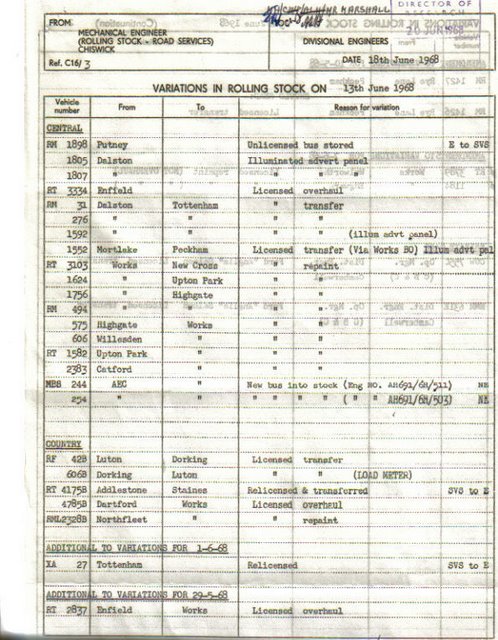 DIRECTOR OF
20 JUN 1968
FROM
MECHANICAL ENGINEER
(ROLLING STOCK - ROAD SERVICES)
CHISWICK
Ref. C16/3
DIVISIONAL ENGINEERS
DATE 18th June 1968
VARIATIONS IN ROLLING STOCK ON 13th June 1968
Vehicle number From To Reason for variation
CENTRAL
RM 1898 Putney Unlicensed bus stored E to SVS
1805 Dalston Illuminated advert panel
1807 " " " "
RT 3334 Enfield Licensed overhaul
RM 31 Dalston Tottenham " transfer
276 " " " "
1592 " " " " (illum advt panel)
1552 Mortlake Peckham Licensed transfer (Via Works BO) Illum advt pel
RT 3103 Works New Cross " repaint
1624 " Upton Park " "
1756 " Highgate " "
RM 494 " " " "
575 Highgate Works " "
606 Willesden " " "
RT 1582 Upton Park " " "
2383 Catford " " "
MBS 244 AEC " New bus into stock (Eng NO. AH691/6H/511) NE
254 " " " " " " ( " " AH691/6H/503) NE
COUNTRY
RF 42B Luton Dorking Licensed transfer
606B Dorking Luton " " (LOAD METER)
RT 4175B Addlestone Staines Relicensed & transferred SVS to E
4785B Dartford Works Licensed overhaul
RML2328B Northfleet " " repaint
ADDITIONAL TO VARIATIONS FOR 1-6-68
XA 27 Tottenham Relicensed SVS to E
ADDITIONAL TO VARIATIONS FOR 29-5-68
RT 2837 Enfield Works Licensed overhaul